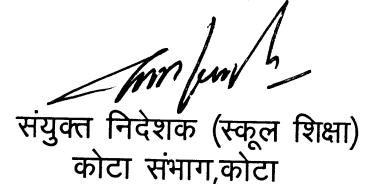 संयुक्त निदेशक (स्कूल शिक्षा)
कोटा संभाग,कोटा